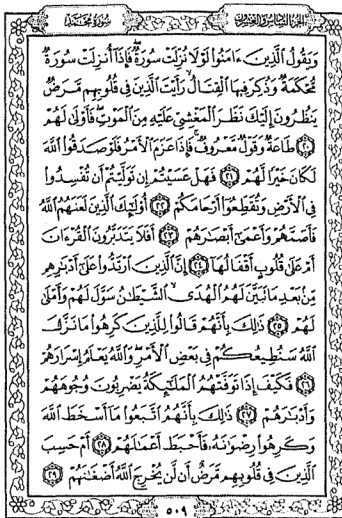 الجزء السادس والعشرون سورة محمد
وَيَقُولُ الَّذِينَ ءَامَنُوا لَوْلَا نُزِّلَتْ سُورَةٌ فَإِذَا أُنزِلَتْ سُورَةٌ
مُّحْكَمَةٌ وَذُكِرَ فِيهَا الْقِتَالُ رَأَيْتَ الَّذِينَ فِي قُلُوبِهِم مَّرَضٌ
يَنظُرُونَ إِلَيْكَ نَظَرَ الْمَغْشِيِّ عَلَيْهِ مِنَ الْمَوْتِ فَأَوْلَىٰ لَهُمْ
﴿٢٠﴾ طَاعَةٌ وَقَوْلٌ مَّعْرُوفٌ فَإِذَا عَزَمَ الْأَمْرُ فَلَوْ صَدَقُوا اللَّهَ
لَكَانَ خَيْرًا لَّهُمْ ﴿٢١﴾ فَهَلْ عَسَيْتُمْ إِن تَوَلَّيْتُمْ أَن تُفْسِدُوا
فِي الْأَرْضِ وَتُقَطِّعُوا أَرْحَامَكُمْ ﴿٢٢﴾ أُولَٰئِكَ الَّذِينَ لَعَنَهُمُ اللَّهُ
فَأَصَمَّهُمْ وَأَعْمَىٰ أَبْصَٰرَهُمْ ﴿٢٣﴾ أَفَلَا يَتَدَبَّرُونَ الْقُرْءَانَ
أَمْ عَلَىٰ قُلُوبٍ أَقْفَالُهَا ﴿٢٤﴾ إِنَّ الَّذِينَ ارْتَدُّوا عَلَىٰ أَدْبَٰرِهِم
مِّن بَعْدِ مَا تَبَيَّنَ لَهُمُ الْهُدَى الشَّيْطَٰنُ سَوَّلَ لَهُمْ وَأَمْلَىٰ
لَهُمْ ﴿٢٥﴾ ذَٰلِكَ بِأَنَّهُمْ قَالُوا لِلَّذِينَ كَرِهُوا مَا نَزَّلَ
اللَّهُ سَنُطِيعُكُمْ فِي بَعْضِ الْأَمْرِ وَاللَّهُ يَعْلَمُ إِسْرَارَهُمْ
﴿٢٦﴾ فَكَيْفَ إِذَا تَوَفَّتْهُمُ الْمَلَٰئِكَةُ يَضْرِبُونَ وُجُوهَهُمْ
وَأَدْبَٰرَهُمْ ﴿٢٧﴾ ذَٰلِكَ بِأَنَّهُمُ اتَّبَعُوا مَا أَسْخَطَ اللَّهَ
وَكَرِهُوا رِضْوَٰنَهُ فَأَحْبَطَ أَعْمَٰلَهُمْ ﴿٢٨﴾ أَمْ حَسِبَ
الَّذِينَ فِي قُلُوبِهِم مَّرَضٌ أَن لَّن يُخْرِجَ اللَّهُ أَضْغَٰنَهُمْ ﴿٢٩﴾
٥٠٩